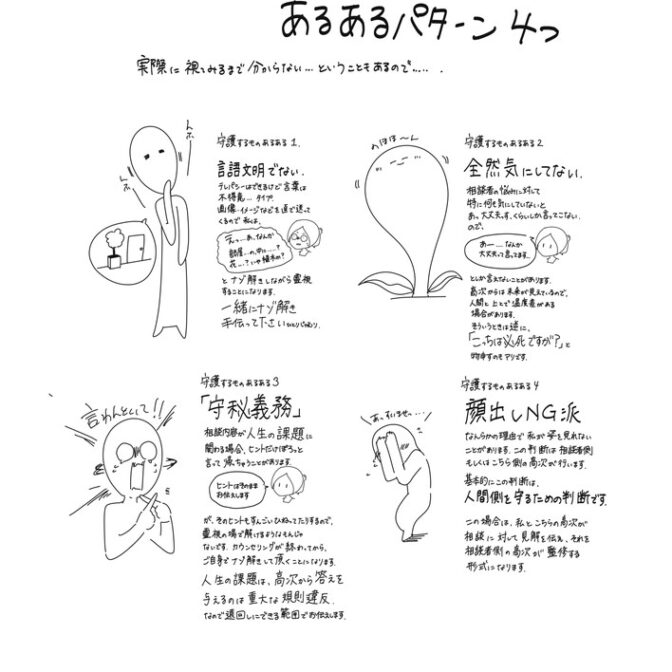 あるあるパターン 4つ
実際に視てみるまで分からない…ということもあるので…… .
守護するものあるある 1.
言語文明でない.
テレパシーはできるけど言葉は
不得意…タイプ.
画像・イメージなどを直で送って
くるので 私は、
えっ…あ、なんか
部屋…の中に……?
花…?いや植木か?
とナゾ解きしながら霊視
することになります.
一緒にナゾ解き
手伝って下さい
ホ
ホ
守護するものあるある 2
全然気にしてない.
相談者の悩みに対して
特に何も気にしていないと
あっ大丈夫、くらいしか言ってこない
ので、
あー……なんか
大丈夫って言ってます.
としか言えないことがあります.
高次からは未来が見えているので、
人間と上とで温度差がある
場合があります.
そういうときは逆に、
「こっちは必死ですが?」と
物申すのもアリです.
わほほ〜ん
守護するものあるある 3
「守秘義務」
相談内容が人生の課題に
関わる場合、ヒントだけぽろっと
言って帰ちゃうことがあります.
ヒントはそのまま
お伝えします
が、そのヒントもすんごいひねってたりするので、
霊視の場で解けるようなもんじゃ
ないです. カウンセリングが終わってから、
ご自身でナゾ解きして頂くことになります.
人生の課題は、高次から答えを
与えるのは重大な規則違反.
なので遠回しにできる範囲でお伝えします.
言わんといて!!
守護するものあるある 4
顔出しNG派
なんらかの理由で私が姿を見れない
ことがあります. この判断は相談者側
もしくはこちら側の高次が行います.
基本的にこの判断は、
人間側を守るための判断です.
この場合は、私とこちらの高次が
相談に対して見解を伝え、それを
相談者側の高次が監修する
形式になります.
あっすいませっ…